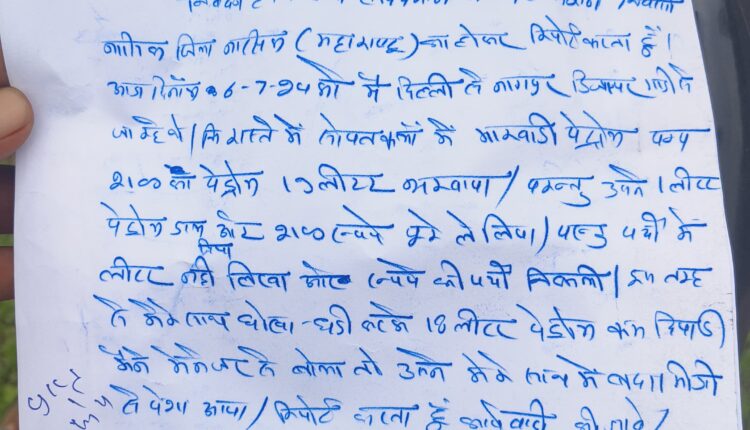 नासिक जिला नासिक (महाराष्ट्र) का होकर रिपोर्ट करता हूँ।
आज दिनाँक 26-7-24 को मैं दिल्ली से नागपुर डिजायर गाडी से
जा रहे थे / कि रास्ते में सोपतकलाँ में मारवाडी पेट्रोल पम्प
2100 का पेट्रोल 19 लीटर भरवाया / परन्तु उसने 1 लीटर
पेट्रोल डाल दिया और 2100 रूपये पूरे ले लिया / परन्तु पर्ची में
लीटर नही लिखा और रूपये की पर्ची निकाली / इस तरह
से मेरे साथ धोखा-धडी करके 18 लीटर पेट्रोल कम दिया /
मैने मैनेजर से बोला तो उसने मेरे साथ में
से पेश आया / रिपोर्ट करता हूँ कार्यवाही की जावे /